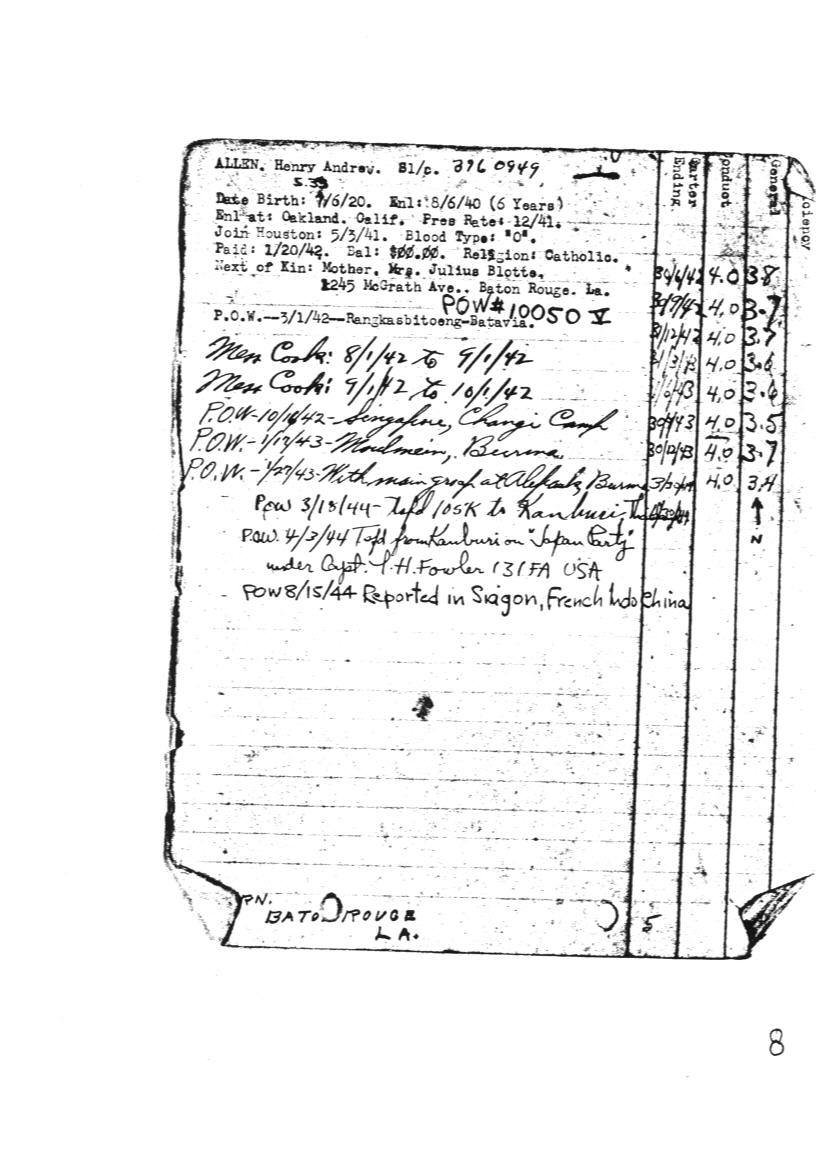 ALLEN. Henry Andrew. S1/c. 396 0949
Date Birth: /6/20. Enl: 8/6/40 (6 Years)
Enl at: Oakland. Calif. Pres Rate: 12/41.
Join Houston: 5/3/41. Blood Type: "O".
Paid: 1/20/42. Bal: $00.00. Religion: Catholic.
Next of Kin: Mother. Mrs. Julius Blotte.
1245 McGrath Ave.. Baton Rouge. La.
POW# 10050 V
P.O.W.--3/1/42--Rangkasbitoeng-Batavia.
Mess Cook: 8/1/42 to 9/1/42
Mess Cook: 9/1/42 to 10/1/42
P.O.W-10/16/42-Singapore, Changi Camp
P.O.W.-1/17/43-Moulmein, Burma
P.O.W.-1/27/43-With main group at Burma
POW 3/18/44- Tsfd 105K to Kanburi,
P.O.W. 4/3/44 Tsfd from Kanburi on "Japan Party"
under Capt. H. Fowler 131FA USA
POW 8/15/44 Reported in Siagon, French Indo China
PN.
BATO ROUGE
LA.
Ending
onduct
General
ciency
30/6/42 4.0 3.8
30/9/42 4.0 3.7
31/12/42 4.0 3.7
4.0 3.6
4.0 3.6
30/9/43 4.0 3.5
30/12/43 4.0 3.7
4.0 3.4
N
5
8